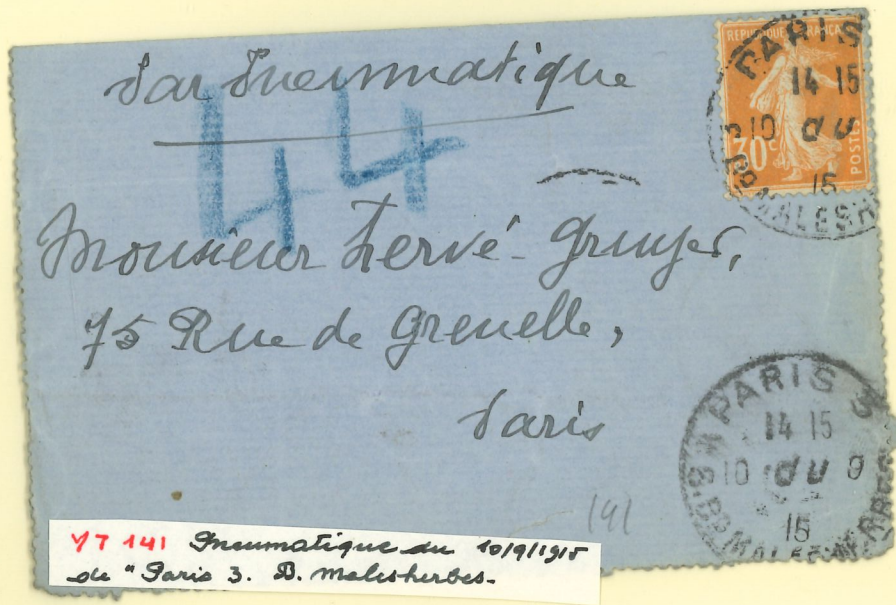 Par Pneumatique
44
REPUBLIQUE FRANCAISE
30c
POSTES
PARIS 3
14 15
10
15
BD MALESH
Monsieur Hervé-Gruyer,
75 Rue de Grenelle,
Paris
PARIS 3
14 15
10 9
15
BD MALESHERBES
141
YT 141 Pneumatique du 10/9/1915
de "Paris 3. B. Malesherbes-